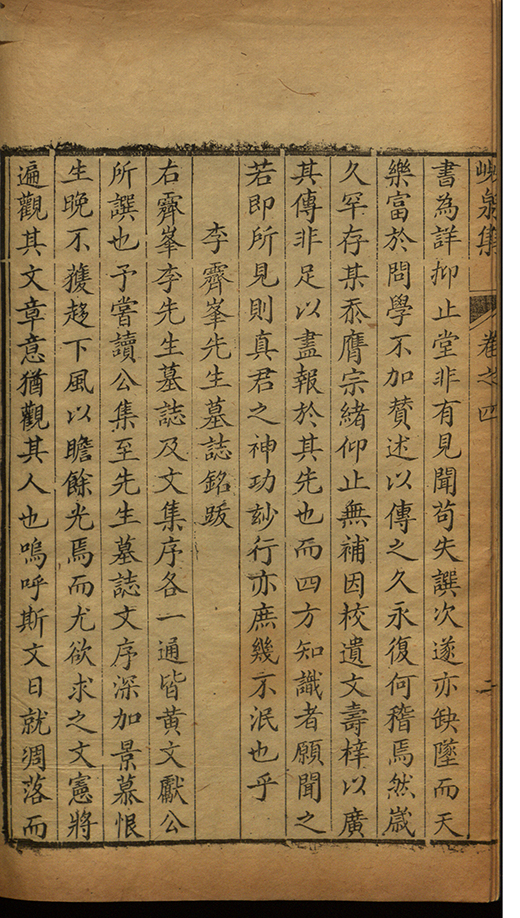 峴泉集 卷之四 二
書為詳抑止堂非有見聞苟失譔次遂亦缺墜而天
樂富於問學不加賛述以傳之久永復何稽焉然嵗
久罕存某忝膺宗緒仰止無補因校遺文壽梓以廣
其傳非足以盡報於其先也而四方知識者願聞之
若即所見則真君之神功玅行亦庶幾不泯也乎
李霽峯先生墓誌銘跋
右霽峯李先生墓誌及文集序各一通皆黄文獻公
所譔也予嘗讀公集至先生墓誌文序深加景慕恨
生晚不獲趍下風以瞻餘光焉而尤欲求之文憲將
遍觀其文章意猶觀其人也嗚呼斯文日就凋落而